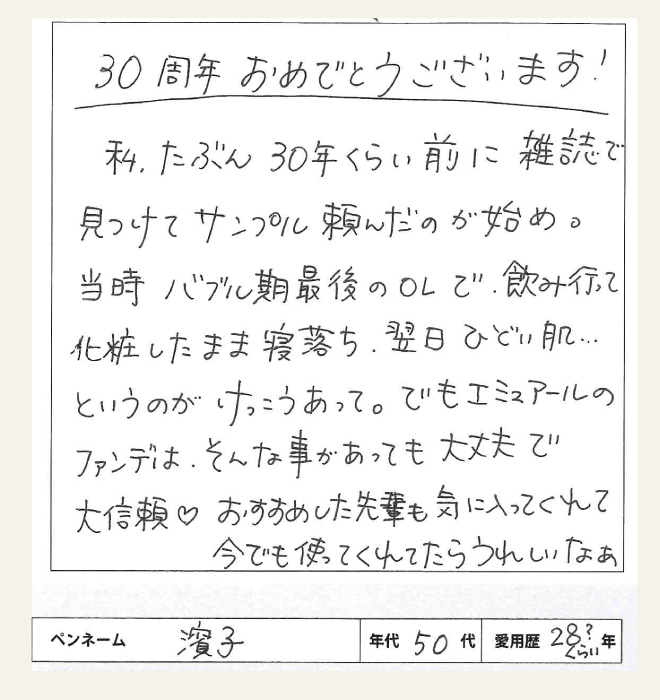 30周年 おめでとうございます!
私、たぶん 30年くらい前に 雑誌で
見つけて サンプル 頼んだのが始め。
当時 バブル期最後のOLで、飲み行って
化粧したまま寝落ち、翌日 ひどい肌…
というのが けっこうあって。でもエミュアールの
ファンデは、そんな事があっても 大丈夫で
大信頼♡ おすすめした先輩も気に入ってくれて
今でも使ってくれてたらうれしいなぁ
ペンネーム 濱子 年代 50 代 愛用歴 28?くらい 年